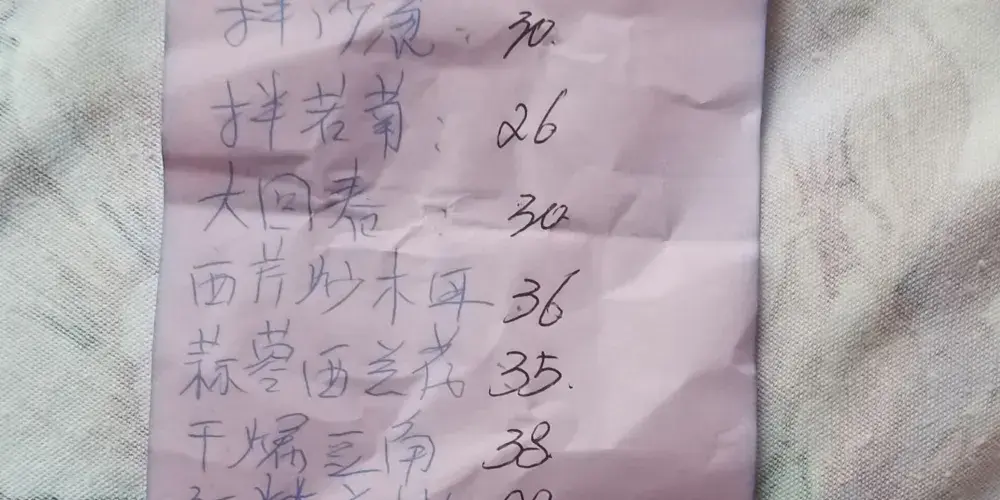 拌沙葱：30.
拌苦菊：26
大回春：30
西芹炒木耳 36
蒜蓉西兰花 35.
干煸豆角 38